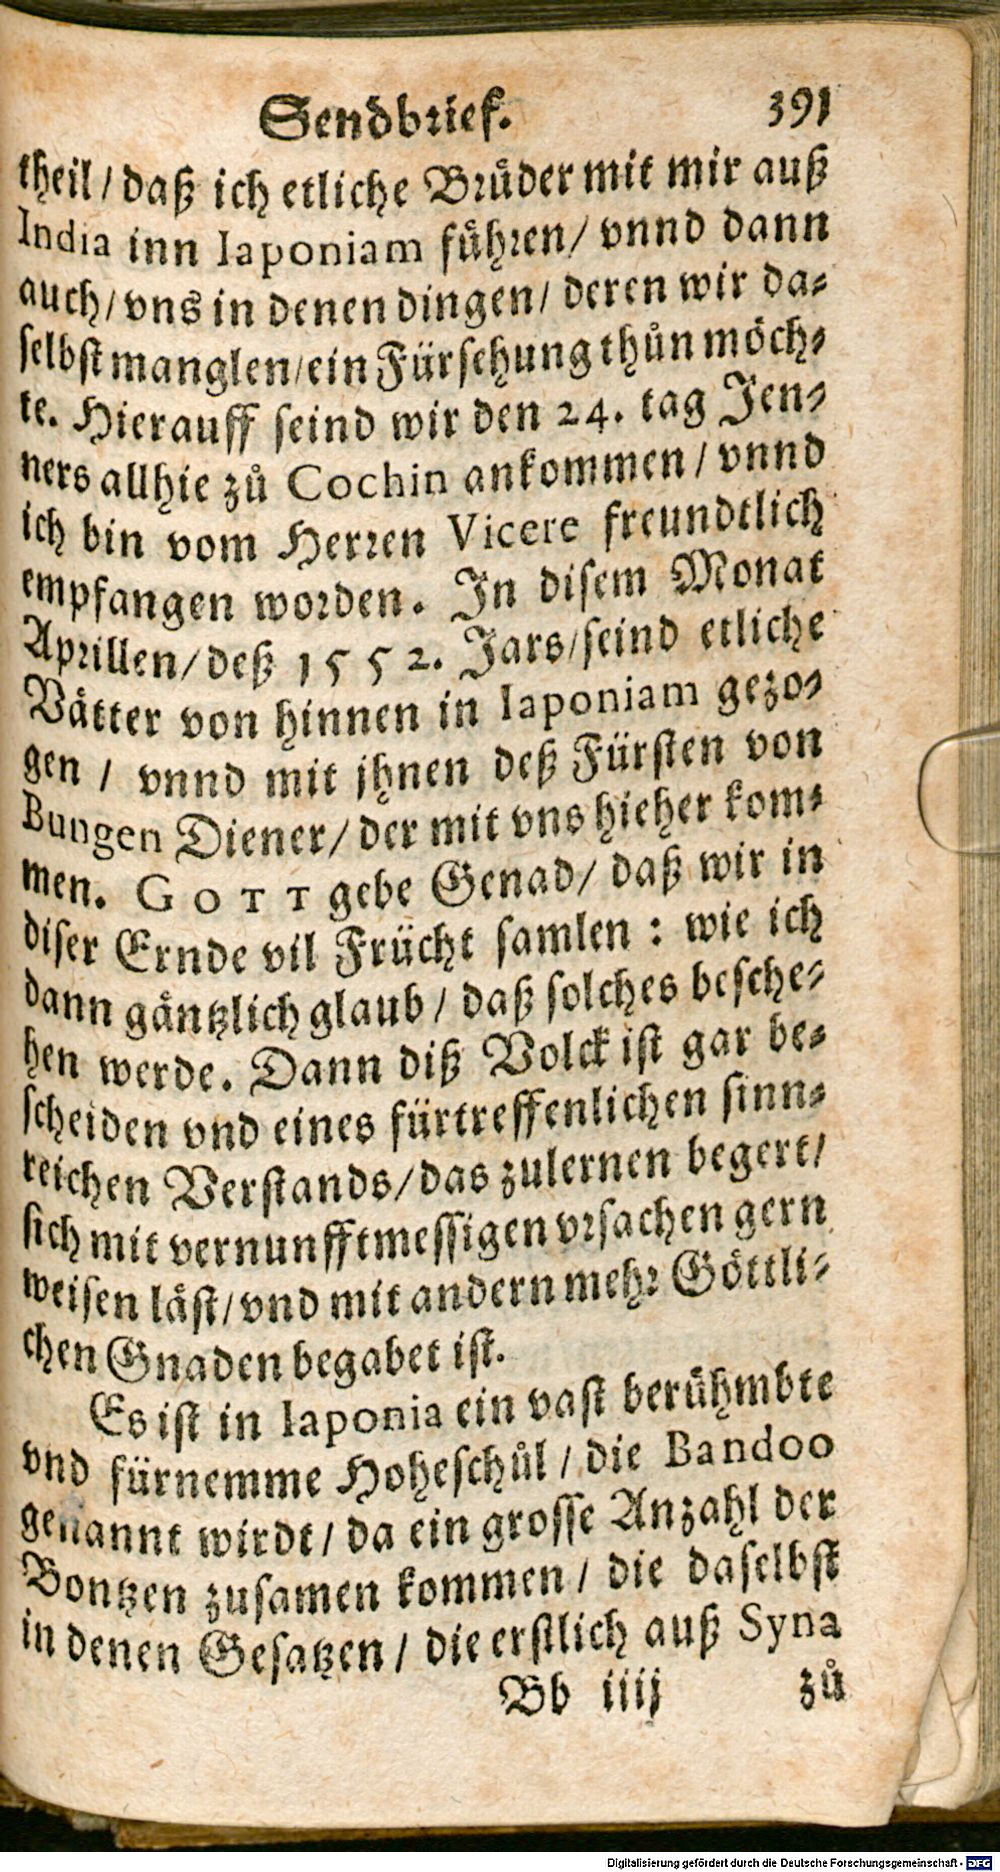 Sendbrief. 391
theil/ daß ich etliche Brůder mit mir auß
India inn Iaponiam fůhren/ vnnd dann
auch/ vns in denen dingen/ deren wir da-
selbst manglen/ ein Fürsehung thůn möch-
te. Hierauff seind wir den 24. tag Jen-
ners allhie zů Cochin ankommen/ vnnd
ich bin vom Herren Vicere freundtlich
empfangen worden. In disem Monat
Aprillen/ deß 1552. Jars/ seind etliche
Vätter von hinnen in Iaponiam gezo-
gen/ vnnd mit jhnen deß Fürsten von
Bungen Diener/ der mit vns hieher kom-
men. GOTT gebe Genad/ daß wir in
diser Ernde vil Frücht samlen: wie ich
dann gäntzlich glaub/ daß solches besche-
hen werde. Dann diß Volck ist gar be-
scheiden vnd eines fürtreffenlichen sinn-
reichen Verstands/ das zulernen begert/
sich mit vernunfftmessigen vrsachen gern
weisen läst/ vnd mit andern mehr Göttli-
chen Gnaden begabet ist.
Es ist in Iaponia ein vast berühmbte
vnd fürnemme Hoheschůl/ die Bandoo
genannt wirdt/ da ein grosse Anzahl der
Bontzen zusamen kommen/ die daselbst
in denen Gesatzen/ die erstlich auß Syna
Bb iiij zů
Digitalisierung gefördert durch die Deutsche Forschungsgemeinschaft - DFG